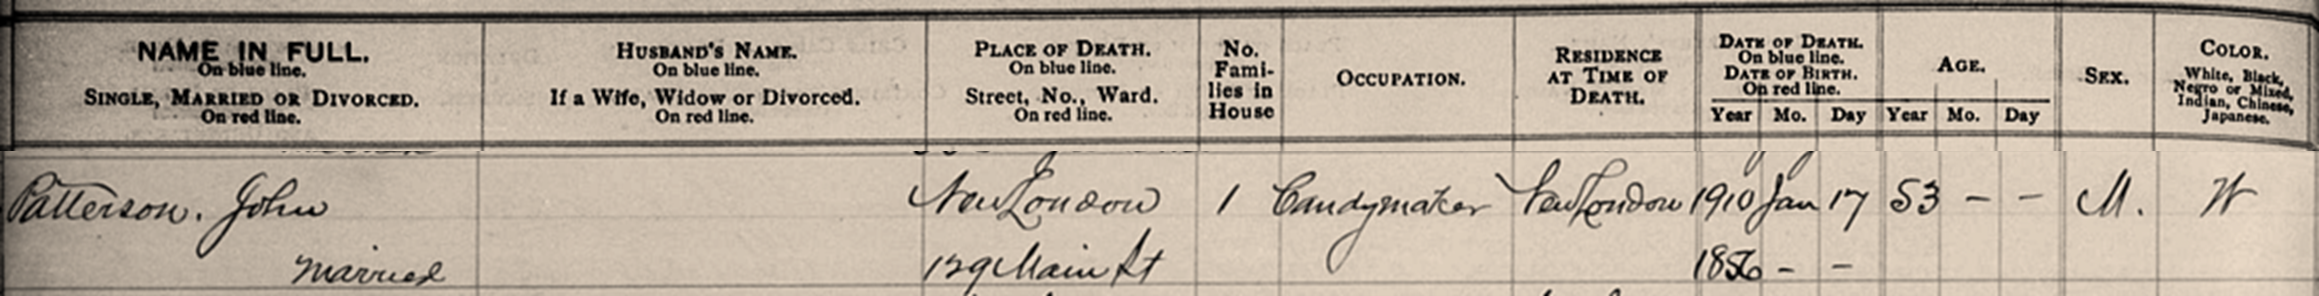 NAME IN FULL.
On blue line.
SINGLE, MARRIED OR DIVORCED.
On red line.
HUSBAND'S NAME.
On blue line.
If a Wife, Widow or Divorced.
On red line.
PLACE OF DEATH.
On blue line.
Street, No., Ward.
On red line.
No.
Fami-
lies in
House
OCCUPATION.
RESIDENCE
AT TIME OF
DEATH.
DATE OF DEATH.
On blue line.
DATE OF BIRTH.
On red line.
Year Mo. Day
AGE.
Year Mo. Day
SEX.
COLOR.
White, Black,
Negro or Mixed,
Indian, Chinese,
Japanese.
Patterson. John New London 1 Candymaker New London 1910 Jan 17 53 - - M. W
Married 129 Main St 1856 - -